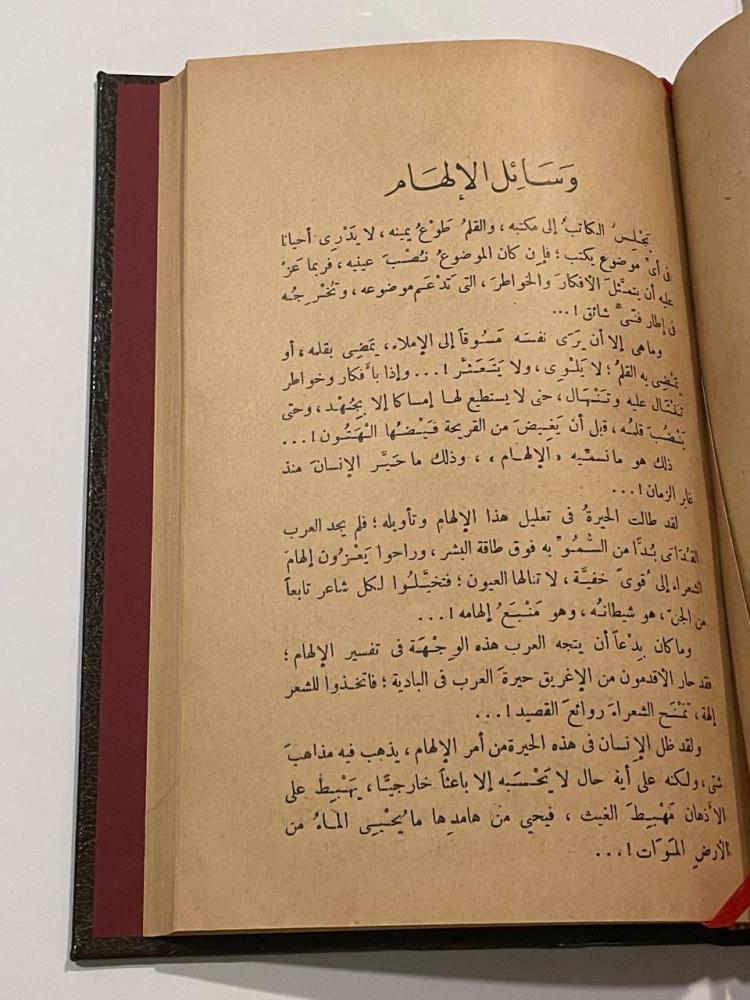 وَسَائِل الإِلهَام
يَجْلِسُ الكاتبُ إلى مكتبه، والقلمُ طَوْعُ يمينه، لا يَدْرِى أحيانا
فى أىّ موضوع يكتب؛ فإن كان الموضوعُ نُصْبَ عينيه، فربما عَزّ
عليه أن يتمثَّلَ الأفكار والخواطرَ، التى تَدْعَم موضوعه، وتُخْرِجُه
فى إطار فنّىّ شائق!...
وماهى إلا أن يَرَى نفسَه مَسُوقاً إلى الإملاء، يَمْضِى بقلمه، أو
يَمْضِى به القلمُ؛ لا يَلْوِى، ولا يَتَعَثَّر!... وإذا بأفكار وخواطر
تَنْثَال عليه وتَنْهَال، حتى لا يستطيع لها إمساكا إلا بِجُهْد، وحتى
يَنْضُبَ قلمُه، قبل أن يَغِيضَ من القريحة فَيْضُها الهَتُون!...
ذلك هو مانسمّيه «الإلهام»، وذلك ما حَيَّر الإنسانَ منذ
غابر الزمان!...
لقد طالت الحيرةُ فى تعليل هذا الإلهام وتأويله؛ فلم يجد العرب
القُدَامَى بُدًّا من السُّمُوّ به فوق طاقة البشر، وراحوا يَعْزُون إلهامَ
الشعراء إلى قُوىً خفيَّة، لا تنالها العيون؛ فتخيَّلُوا لكل شاعر تابعاً
من الجنّ، هو شيطانُه، وهو مَنْبَعُ إلهامه!...
وماكان بِدْعاً أن يتجه العرب هذه الوِجْهَة فى تفسير الإلهام؛
فقد حار الأقدمون من الإغريق حيرةَ العرب فى البادية؛ فاتخذوا للشعر
إلهة، تَمْنَح الشعراءَ روائعَ القصيد!...
ولقد ظل الإنسان فى هذه الحيرة من أمر الإلهام، يذهب فيه مذاهبَ
شتى، ولكنه على أية حال لا يَحْسَبه إلا باعثاً خارجيًّا، يَهْبِط على
الأذهان مَهْبِطَ الغيث، فيحيى من هامدِها ما يُحْيِى الماءُ من
الأرضِ المَوَات!...